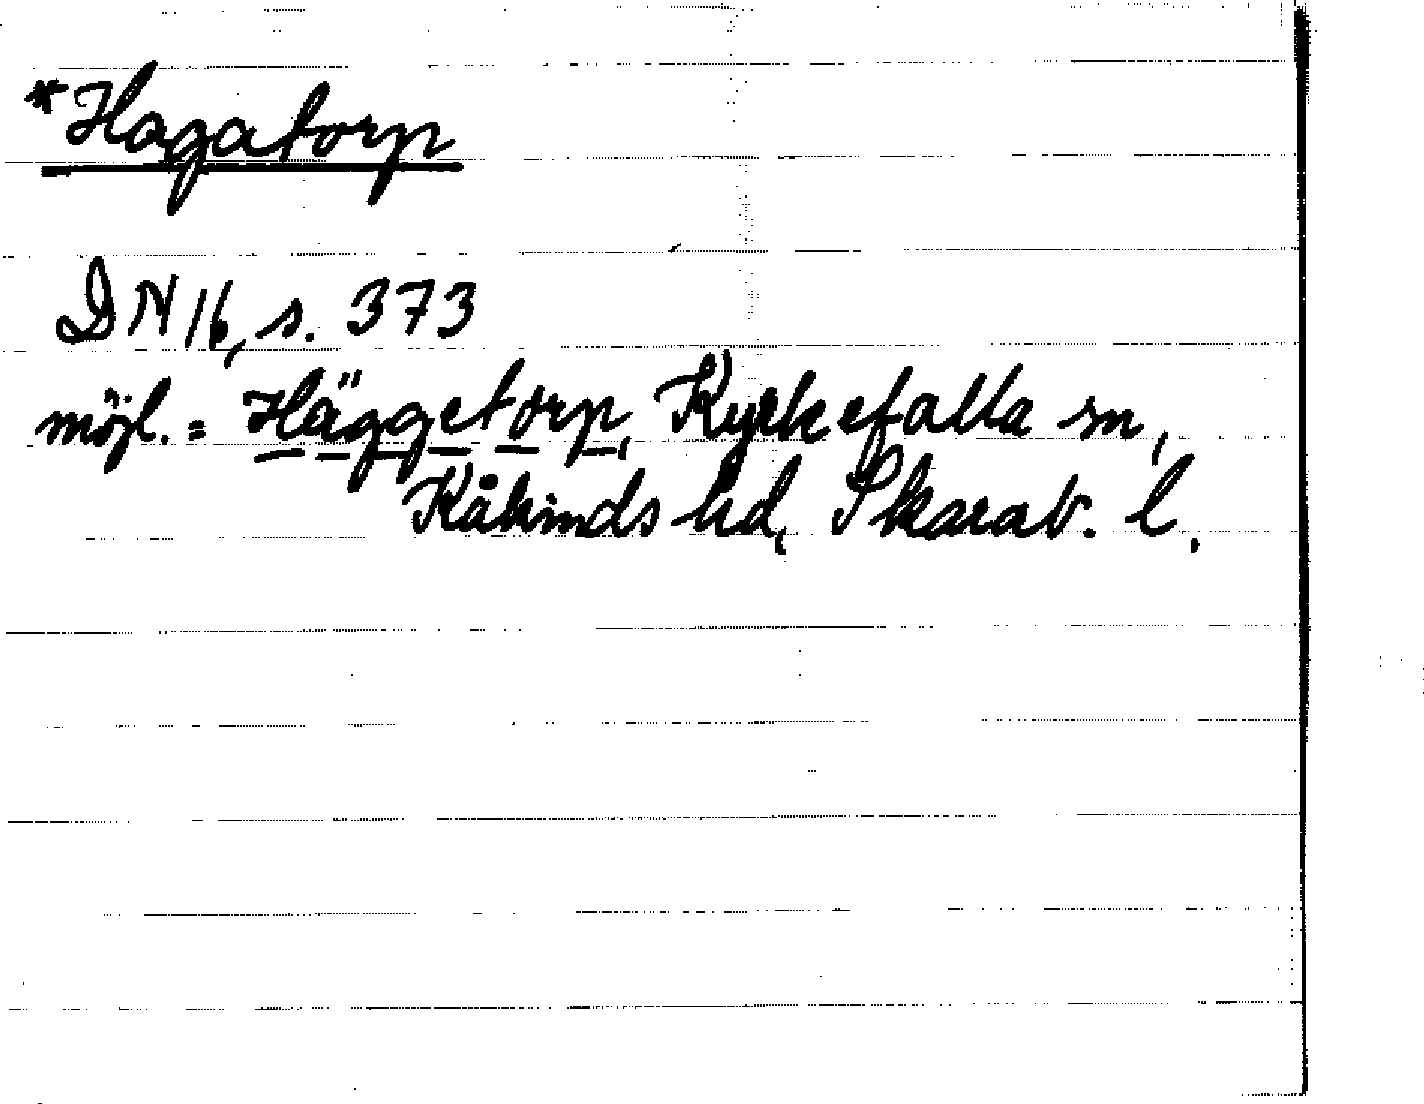 *Hagatorp
DN 16, s. 373
möjl. = Häggetorp, Kyrkefalla sn,
Kåkinds hd, Skarab. l.